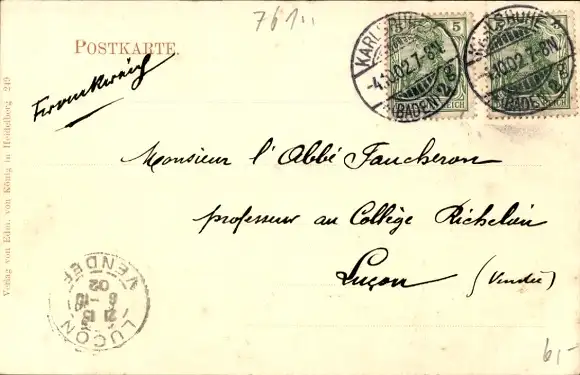 761..
POSTKARTE.
Frankreich
5
REICH
KARLSRUHE
4.10.02.7-8N.
(BADEN) 2b
KARLSRUHE
4.10.02.7-8N.
(BADEN) 2b
REICH
Monsieur l'Abbé Faucheron
professeur au Collège Richelieu
Luçon (Vendée)
LUÇON
VENDEE
02
Verlag von Edm. von König in Heidelberg 249
6,-